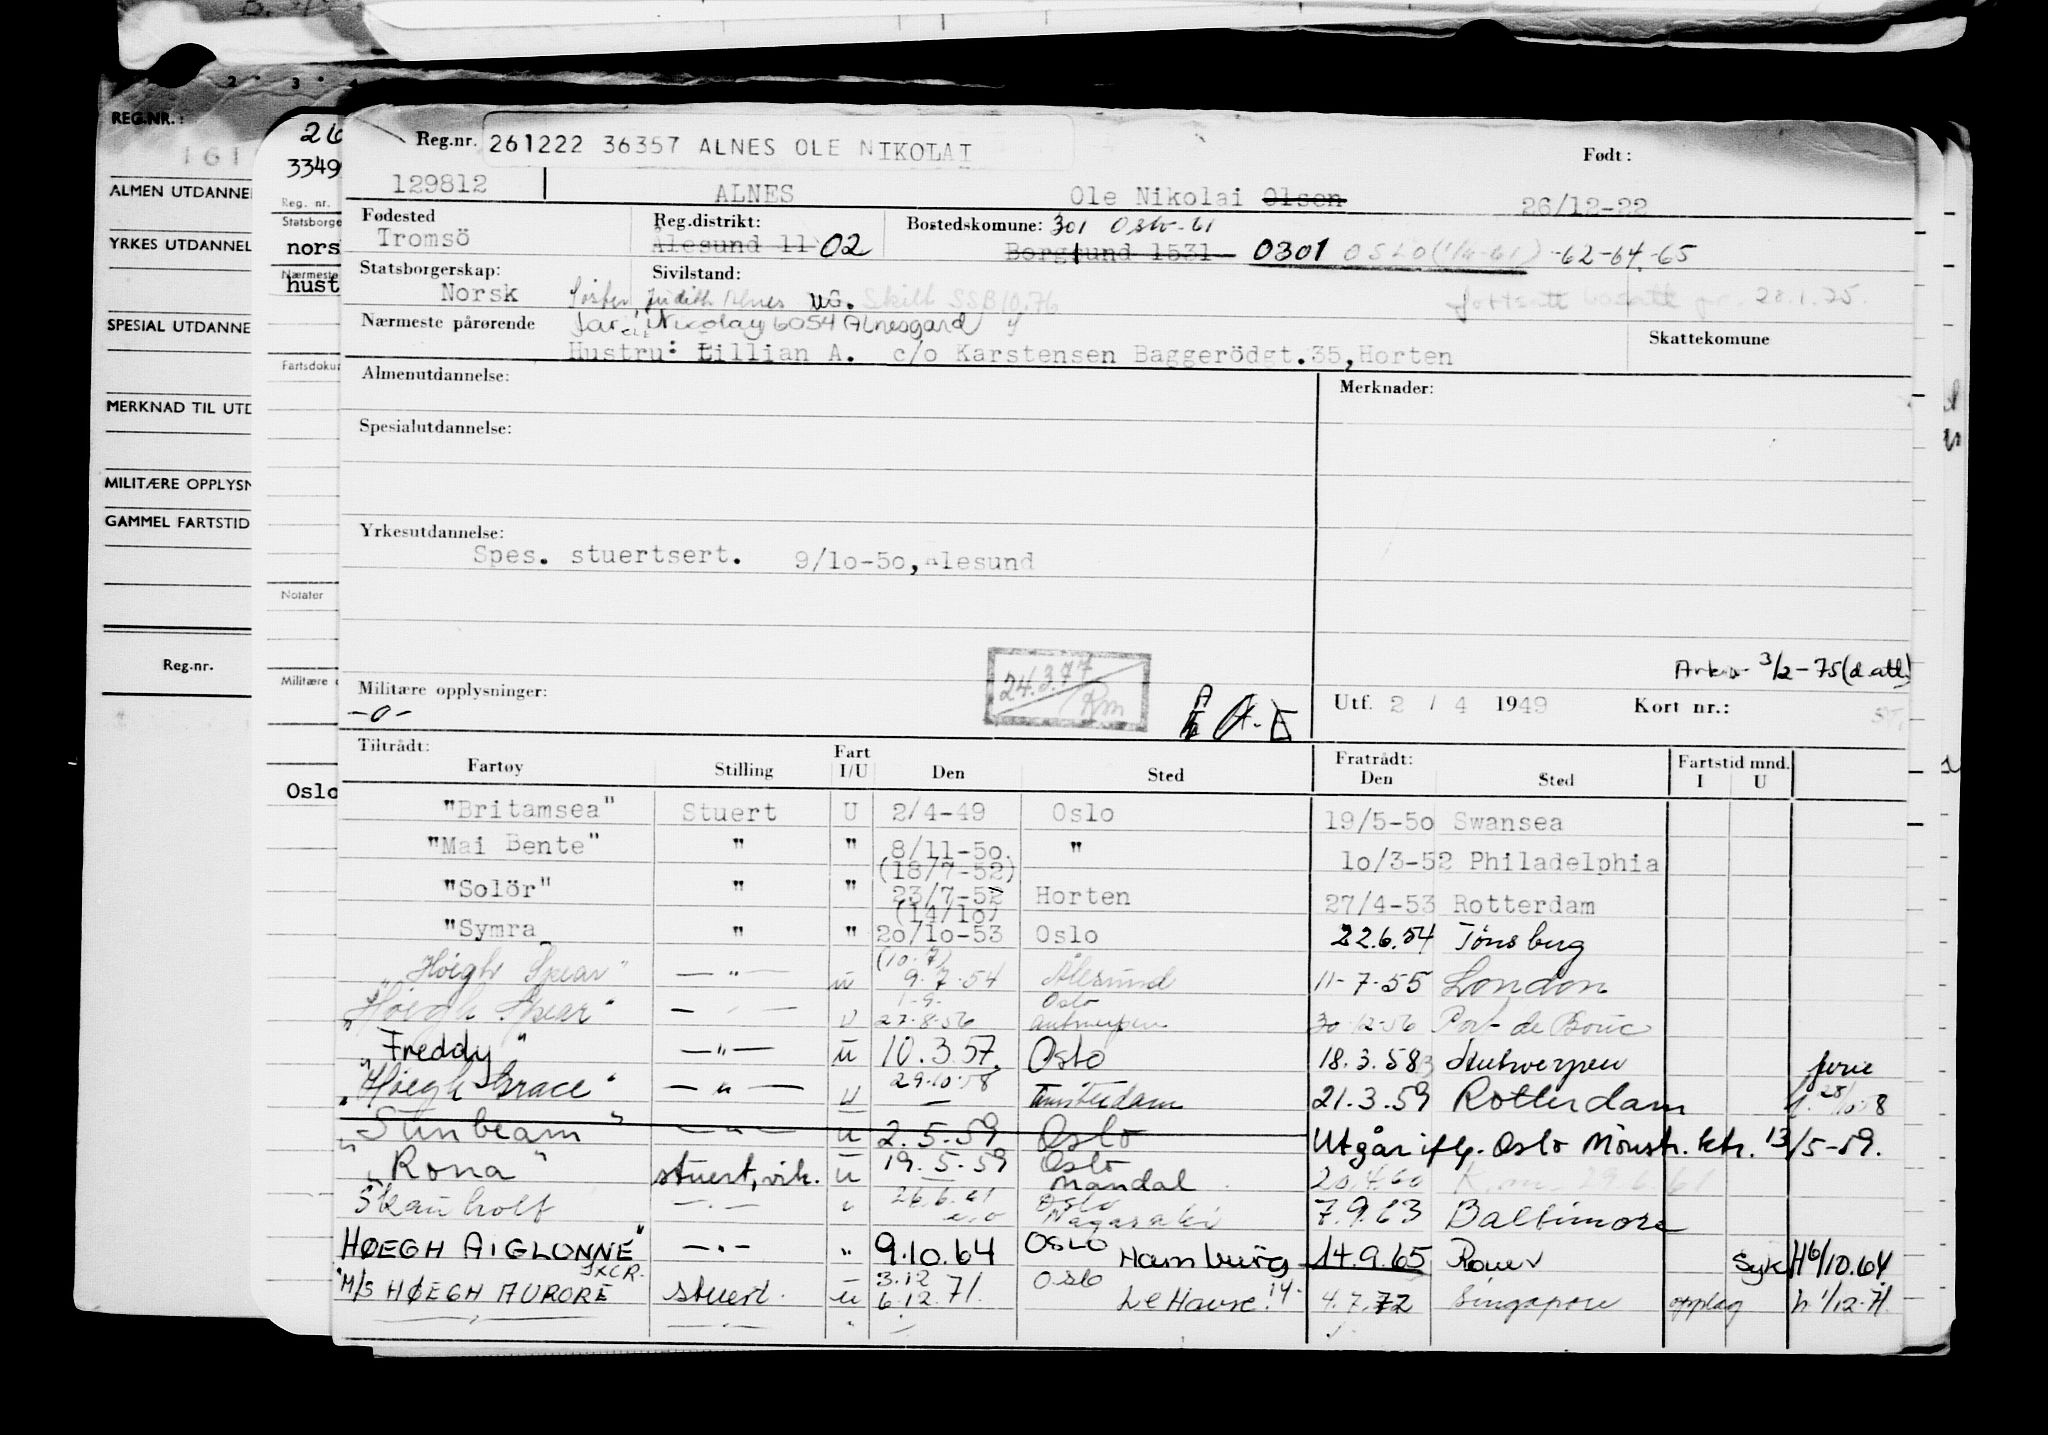 REG.NR.:
161
ALMEN UTDANNE
YRKES UTDANNEL
SPESIAL UTDANNE
MERKNAD TIL UTD
MILITÆRE OPPLYSN
GAMMEL FARTSTID
Reg.nr.
26
3349
Reg. nr.
Statsborge
nors
Nærmeste
hust
Fartsdokum
Notater
Militære o
Oslo
Reg.nr. 261222 36357 ALNES OLE NIKOLAI
Født:
129812 ALNES Ole Nikolai Olsen 26/12-22
Fødested Reg.distrikt: Bostedskomune: 301 Oslo-61
Tromsö Ålesund 11 02 Borgsund 1531 0301 OSLO (1/4-61) -62-64-65
Statsborgerskap: Sivilstand:
Norsk Søster Judith Alnes UG. Skilt SSB 10.76 fortsatt bosatt pr. 28.1.75.
Nærmeste pårørende Far: Nicolay 6054 Alnesgard Skattekomune
Hustru: Lillian A. c/o Karstensen Baggerödgt.35,Horten
Almenutdannelse: Merknader:
Spesialutdannelse:
Yrkesutdannelse:
Spes. stuertsert. 9/10-50, Ålesund
24.3.77
Rm
Arkiv 3/2-75 (d.att)
Militære opplysninger: Utf. 2 / 4 1949 Kort nr.:
-0-
Tiltrådt: Fart Fratrådt: Fartstid mnd.
Fartøy Stilling I/U Den Sted Den Sted I U
"Britamsea" Stuert U 2/4-49 Oslo 19/5-50 Swansea
"Mai Bente" " " 8/11-50. " 10/3-52 Philadelphia
(18/7-52)
"Solör" " " 23/7-52 Horten 27/4-53 Rotterdam
(14/10)
"Symra " " 20/10-53 Oslo 22.6.54 Tönsberg
(10.7)
"Høegh Spear" -"- U 9.7.54 Ålesund 11-7-55 London
1-9- Oslo
"Høegh Spear" - " - U 27.8.56 Antwerpen 30-12-56 Port de Bouc
"Freddy" -"- U 10.3.57. Oslo 18.3.58 Antwerpen ferie
29.10.58
"Høegh Grace" -"- U - Amsterdam 21.3.59 Rotterdam
"Sunbeam" -"- U 2.5.59 Oslo Utgår iflg. Oslo Mönstr. ktr. 13/5-59.
"Rona" stuert, vik. U 19.5.59 Oslo Mandal 20.4.60
Skauholt -"- " 26.6.61 Oslo Nagasaki 7.9.63 Baltimore
HØEGH AIGLONNE" -"- " 9.10.64 OSLO Hamburg 14.9.65 Rouen Syk H 6/10.64
"M/S HØEGH AURORE stuert. U 3.12 6.12.71. Oslo Le Havre. 4.7.72 Singapore opplag h 1/12-71